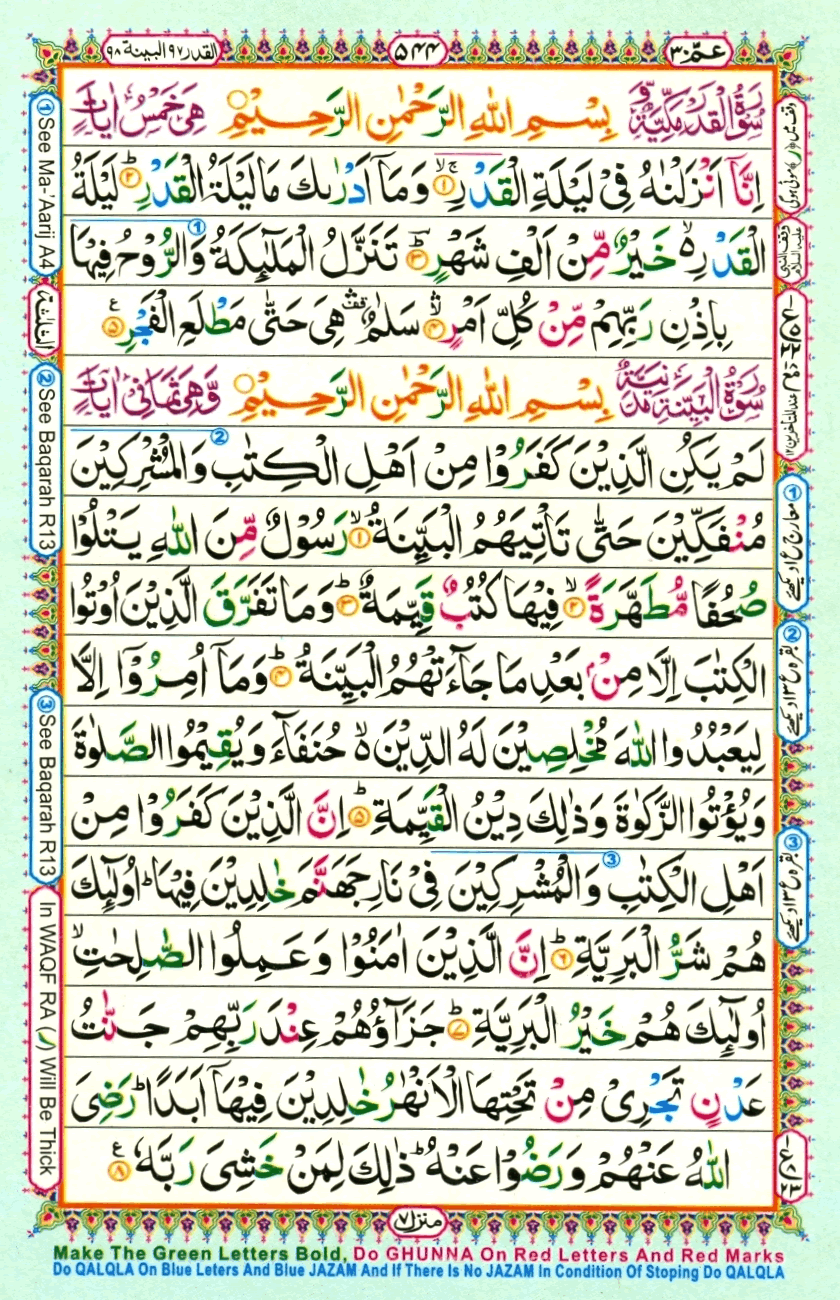 عمّ ٣٠
٥٤٤
القدر ٩٧ البينة ٩٨
سُوْرَةُ الْقَدْرِ مَكِّيَّةٌ وَّ بِسْمِ اللهِ الرَّحْمٰنِ الرَّحِيْمِ هِىَ خَمْسُ اٰيَاتٍ
اِنَّاۤ اَنْزَلْنٰهُ فِىْ لَيْلَةِ الْقَدْرِ ۚۖ‏ ﴿۱﴾ وَمَاۤ اَدْرٰٮكَ مَا لَيْلَةُ الْقَدْرِؕ‏ ﴿۲﴾ لَيْلَةُ
الْقَدْرِ ۙ خَيْرٌ مِّنْ اَلْفِ شَهْرٍؕ‏ ﴿۳﴾ تَنَزَّلُ الْمَلٰٓٮِٕكَةُ وَالرُّوْحُ فِيْهَا
بِاِذْنِ رَبِّهِمْ مِّنْ كُلِّ اَمْرٍ ۛۙ‏ ﴿۴﴾ سَلٰمٌ ۛ هِىَ حَتّٰى مَطْلَعِ الْفَجْرِ ﴿۵﴾
سُوْرَةُ الْبَيِّنَةِ مَدَنِيَّةٌ بِسْمِ اللهِ الرَّحْمٰنِ الرَّحِيْمِ وَّهِىَ ثَمَانِىْ اٰيَاتٍ
لَمْ يَكُنِ الَّذِيْنَ كَفَرُوْا مِنْ اَهْلِ الْكِتٰبِ وَالْمُشْرِكِيْنَ
مُنْفَكِّيْنَ حَتّٰى تَاْتِيَهُمُ الْبَيِّنَةُ ۙ‏ ﴿۱﴾ رَسُوْلٌ مِّنَ اللهِ يَتْلُوْا
صُحُفًا مُّطَهَّرَةً ۙ‏ ﴿۲﴾ فِيْهَا كُتُبٌ قَيِّمَةٌ ؕ‏ ﴿۳﴾ وَمَا تَفَرَّقَ الَّذِيْنَ اُوْتُوا
الْكِتٰبَ اِلَّا مِنْۢ بَعْدِ مَا جَآءَتْهُمُ الْبَيِّنَةُ ؕ‏ ﴿۴﴾ وَمَاۤ اُمِرُوْۤا اِلَّا
لِيَعْبُدُوا اللهَ مُخْلِصِيْنَ لَهُ الدِّيْنَ ۙ حُنَفَآءَ وَيُقِيْمُوا الصَّلٰوةَ
وَيُؤْتُوا الزَّكٰوةَ وَذٰلِكَ دِيْنُ الْقَيِّمَةِ ؕ‏ ﴿۵﴾ اِنَّ الَّذِيْنَ كَفَرُوْا مِنْ
اَهْلِ الْكِتٰبِ وَالْمُشْرِكِيْنَ فِىْ نَارِ جَهَنَّمَ خٰلِدِيْنَ فِيْهَا ؕ اُولٰٓٮِٕكَ
هُمْ شَرُّ الْبَرِيَّةِ ؕ‏ ﴿۶﴾ اِنَّ الَّذِيْنَ اٰمَنُوْا وَعَمِلُوا الصّٰلِحٰتِ ۙ
اُولٰٓٮِٕكَ هُمْ خَيْرُ الْبَرِيَّةِ ؕ‏ ﴿۷﴾ جَزَآؤُهُمْ عِنْدَ رَبِّهِمْ جَنّٰتُ
عَدْنٍ تَجْرِىْ مِنْ تَحْتِهَا الْاَنْهٰرُ خٰلِدِيْنَ فِيْهَاۤ اَبَدًا ؕ رَضِىَ
اللهُ عَنْهُمْ وَرَضُوْا عَنْهُ ؕ ذٰلِكَ لِمَنْ خَشِىَ رَبَّهٗ ﴿۸﴾
منزل ٧
① See Ma-'Aarij A4
② See Baqarah R13
③ See Baqarah R13
In WAQF RA (ر) Will Be Thick
Make The Green Letters Bold, Do GHUNNA On Red Letters And Red Marks
Do QALQLA On Blue Leters And Blue JAZAM And If There Is No JAZAM In Condition Of Stoping Do QALQLA